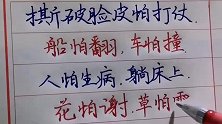 撕破脸皮怕打仗
船怕翻,车怕撞
人怕生病,躺床上
花怕谢,草怕霜